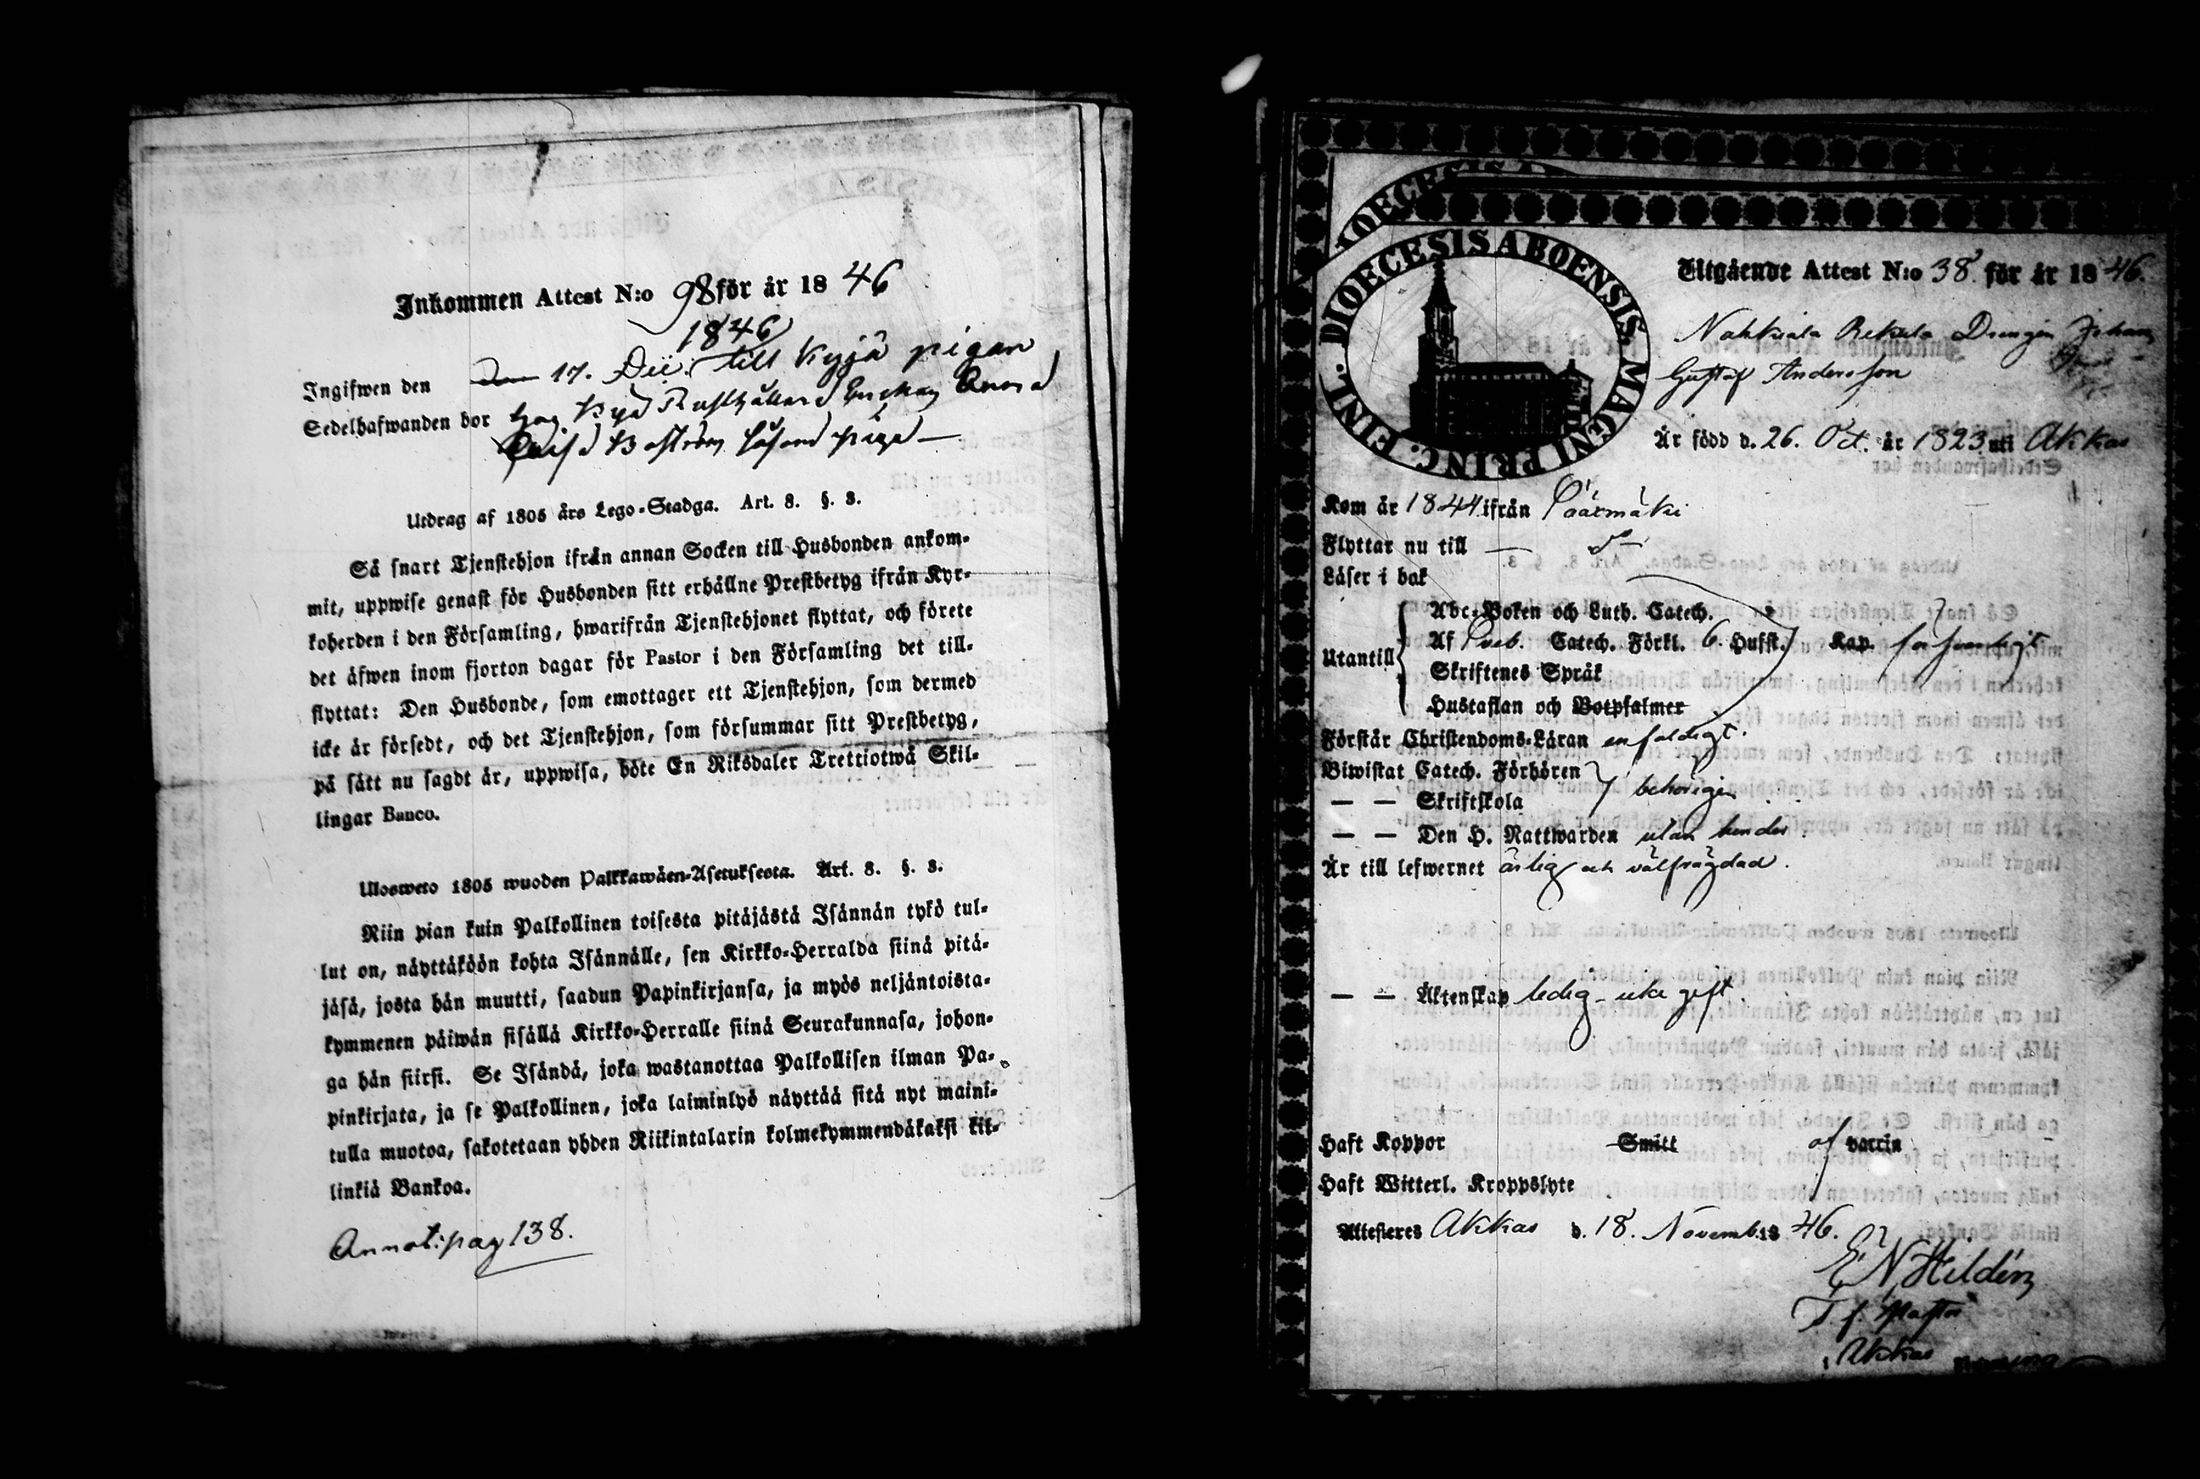 Inkommen Attest N:o 98 för år 1846
1846
Ingifwen den 17. till Kyjä pigan
Sedelhafwanden bor
Utdrag af 1805 års Lego-Stadga. Art. 8. §. 3.
Så snart Tjenstehjon ifrån annan Socken till Husbonden ankom-
mit, uppwise genast för Husbonden sitt erhållne Prestbetyg ifrån Kyr-
koherden i den Församling, hwarifrån Tjenstehjonet flyttat, och förete
det äfwen inom fjorton dagar för Pastor i den Församling det till-
flyttat: Den Husbonde, som emottager ett Tjenstehjon, som dermed
icke är försedt, och det Tjenstehjon, som försummar sitt Prestbetyg,
på sätt nu sagdt är, uppwisa, böte En Riksdaler Trettiotwå Skil-
lingar Banco.
Ulosweto 1805 wuoden Palkkawäen-Asetuksesta. Art. 8. §. 3.
Niin pian kuin Palkollinen toisesta pitäjästä Isännän tykö tul-
lut on, näyttäköön kohta Isännälle, sen Kirkko-Herralda siinä pitä-
jäsä, josta hän muutti, saadun Papinkirjansa, ja myös neljäntoista-
kymmenen päiwän sisällä Kirkko-Herralle siinä Seurakunnasa, johon-
ga hän siirsi. Se Isändä, joka wastanottaa Palkollisen ilman Pa-
pinkirjata, ja se Palkollinen, joka laiminlyö näyttää sitä nyt maini-
tulla muotoa, sakotetaan yhden Riikintalarin kolmekymmendäkaksi kil-
linkiä Bankoa.
Annot: pag 138.
DIOECESIS ABOENSIS. MAGNI PRINC. FINL.
Utgående Attest N:o 38. för år 1846.
Nahkiala Rekula Drengen Johan
Gustaf Andersson
Är född d. 26. Oct. år 1823 uti Akkas
Kom år 1844 ifrån Päärmäki
Flyttar nu till —
Läser i bok
Utantill
Abc-Boken och Luth. Catech.
Af Catech. Förkl. 6. Hufst. Kap. försvarligt
Skriftenes Språk
Hustaflan och Botpsalmer
Förstår Christendoms-Läran enfaldigt.
Biwistat Catech. Förhören
— — Skriftskola behörigen
— — Den H. Nattwarden utan hinder.
Är till lefwernet ärlig och välfrägdad.
— — Äktenskap ledig – icke gift.
Haft Koppor Smitt af vaccin
Haft Witterl. Kroppslyte
Attesteres Akkas d. 18. Novemb. 1846.
E N Hildén
T. f. Pastor
Akkas